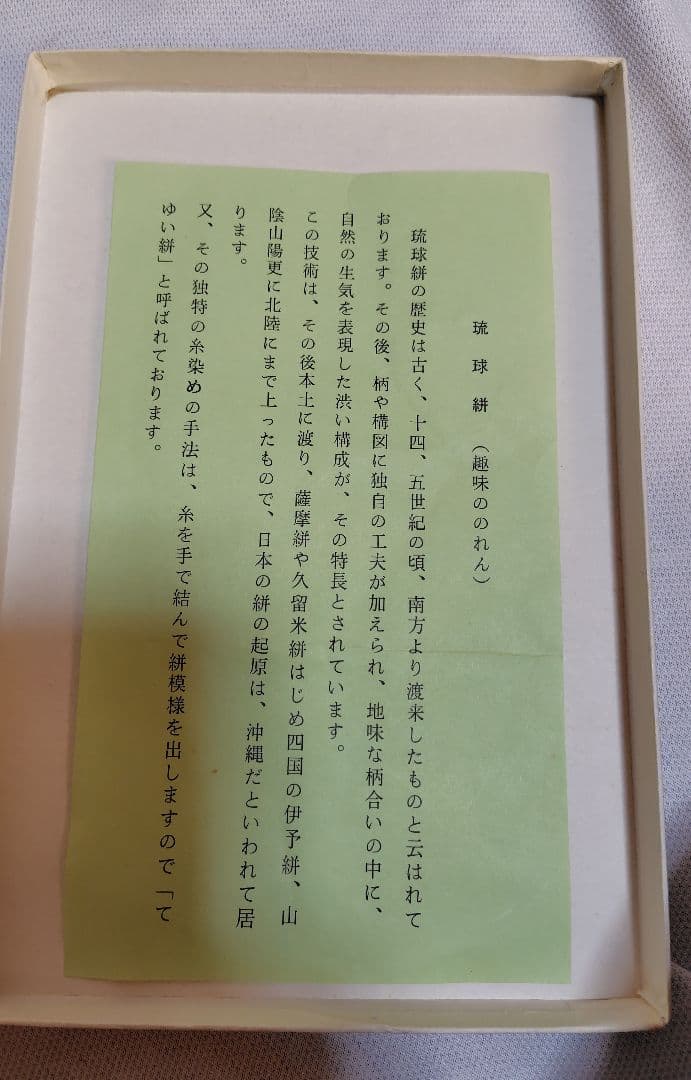 琉球絣 （趣味ののれん）
琉球絣の歴史は古く、十四、五世紀の頃、南方より渡来したものと云はれて
おります。その後、柄や構図に独自の工夫が加えられ、地味な柄合いの中に、
自然の生気を表現した渋い構成が、その特長とされています。
この技術は、その後本土に渡り、薩摩絣や久留米絣はじめ四国の伊予絣、山
陰山陽更に北陸にまで上ったもので、日本の絣の起原は、沖縄だといわれて居
ります。
又、その独特の糸染めの手法は、糸を手で結んで絣模様を出しますので「て
ゆい絣」と呼ばれております。